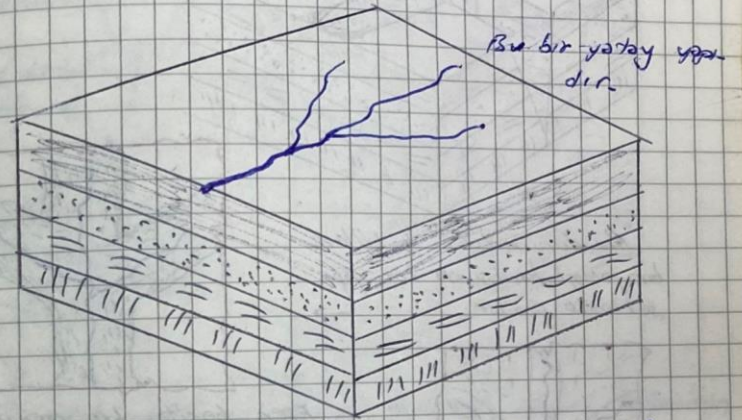 Bu bir yatay yapı-
dır.